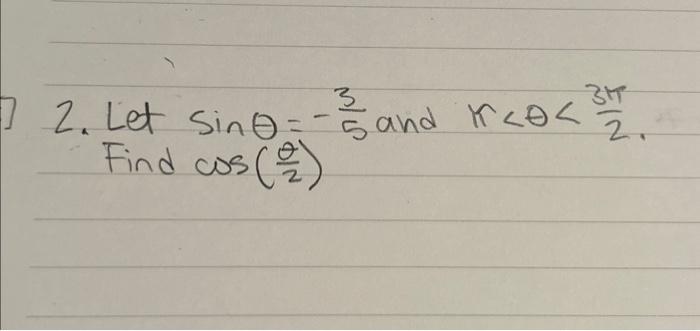 2. Let sinθ = -3/5 and π < θ < 3π/2.
Find cos(θ/2)